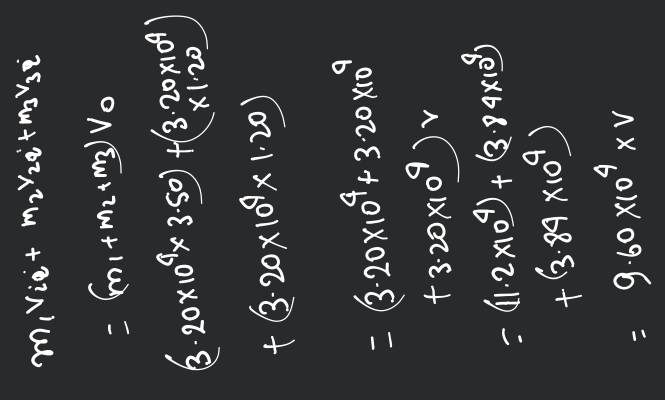 m₁V₁i + m₂V₂i + m₃V₃i
= (m₁ + m₂ + m₃) V₀
(3.20×10⁴ × 3.50) + (3.20×10⁴ × 1.20)
+ (3.20×10⁴ × 1.20)
= (3.20×10⁴ + 3.20×10⁴
+ 3.20×10⁴) v
= (11.2×10⁴) + (3.84×10⁴)
+ (3.84×10⁴)
= 9.60×10⁴ × V